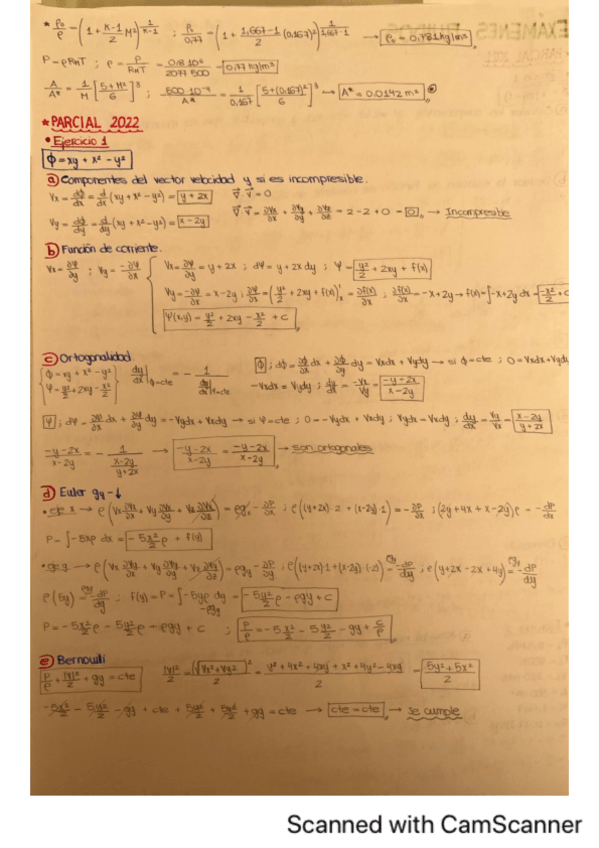 * ρ₀/ρ = (1 + (κ-1)/2 M²)^(1/(κ-1)) ; ρ₀/0,77 = (1 + (1,667-1)/2 (0,167)²)^(1/(1,667-1)) → ρ₀ = 0,781 kg/m³
P = ρRmT ; ρ = P/(RmT) = 0,8·10⁶/(2077·500) = 0,77 kg/m³
A/A* = 1/M [(5+M²)/6]³ ; 500·10⁻⁴/A* = 1/0,167 [(5+(0,167)²)/6]³ → A* = 0.0142 m²
* PARCIAL 2022
• Ejercicio 1
Φ = xy + x² - y²
a) Componentes del vector velocidad y si es incompresible.
Vx = dΦ/dx = d/dx (xy + x² - y²) = y + 2x ∇·V = 0
Vy = dΦ/dy = d/dy (xy + x² - y²) = x - 2y ∇·V = ∂Vx/∂x + ∂Vy/∂y + ∂Vz/∂z = 2 - 2 + 0 = 0 → Incompresible
b) Función de corriente.
Vx = ∂Ψ/∂y ; Vy = -∂Ψ/∂x Vx = ∂Ψ/∂y = y + 2x ; dΨ = y + 2x dy ; Ψ = y²/2 + 2xy + f(x)
Vy = -∂Ψ/∂x = x - 2y ; ∂Ψ/∂x = (y²/2 + 2xy + f(x))'x = ∂f(x)/∂x ; ∂f(x)/∂x = -x + 2y → f(x) = ∫-x + 2y dx = -x²/2 + c
Ψ(x,y) = y²/2 + 2xy - x²/2 + c
c) Ortogonalidad
Φ = xy + x² - y² dy/dx |Φ=cte = - 1/(dy/dx |Ψ=cte) Φ ; dΦ = ∂Φ/∂x dx + ∂Φ/∂y dy = Vxdx + Vydy → si Φ = cte ; 0 = Vxdx + Vydy
Ψ = y²/2 + 2xy - x²/2 -Vxdx = Vydy ; dy/dx = -Vx/Vy = (-y-2x)/(x-2y)
Ψ ; dΨ = ∂Ψ/∂x dx + ∂Ψ/∂y dy = -Vydx + Vxdy → si Ψ = cte ; 0 = -Vydx + Vxdy ; Vydx = Vxdy ; dy/dx = Vy/Vx = (x-2y)/(y+2x)
(-y-2x)/(x-2y) = - 1/((x-2y)/(y+2x)) → (-y-2x)/(x-2y) = (-y-2x)/(x-2y) → son ortogonales
d) Euler gy-↓
• eje x → ρ(Vx ∂Vx/∂x + Vy ∂Vx/∂y + Vz ∂Vx/∂z) = ρgx - ∂P/∂x ; ρ((y+2x)·2 + (x-2y)·1) = -∂P/∂x ; (2y + 4x + x - 2y)ρ = -dP/dx
P = ∫-5xρ dx = -5x²/2 ρ + f(y)
ρ(Vx ∂Vy/∂x + Vy ∂Vy/∂y + Vz ∂Vy/∂z) = ρgy - ∂P/∂y ; ρ((y+2x)·1 + (x-2y)·(-2))
ρ(5y) ; f(y) = P = ∫-5yρ dy = -5y²/2 ρ - ρgy + c
P = -5x²/2 ρ - 5y²/2 ρ - ρgy + c ; P/ρ = -5x²/2 - 5y²/2 - gy + c/ρ
e) Bernouilli
P/ρ + |V|²/2 + gy = cte |V|²/2 = (√(Vx²+Vy²))²/2 = (y² + 4x² + 4xy + x² + 4y² - 4xy)/2 = (5y² + 5x²)/2
-5x²/2 - 5y²/2 - gy + cte + 5y²/2 + 5x²/2 + gy = cte → cte = cte → se cumple
Scanned with CamScanner